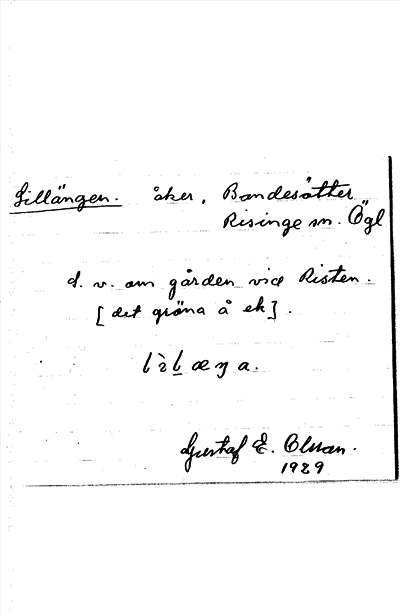 Lillängen. åker, Bondesätter
Risinge sn. Ögl
d. v. om gården vid Risten.
[det gröna å ek].
Gustaf E. Olsson.
1929